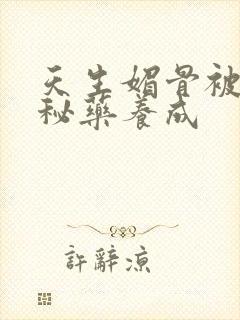 天生媚骨被
秘藥養成
許辭涼